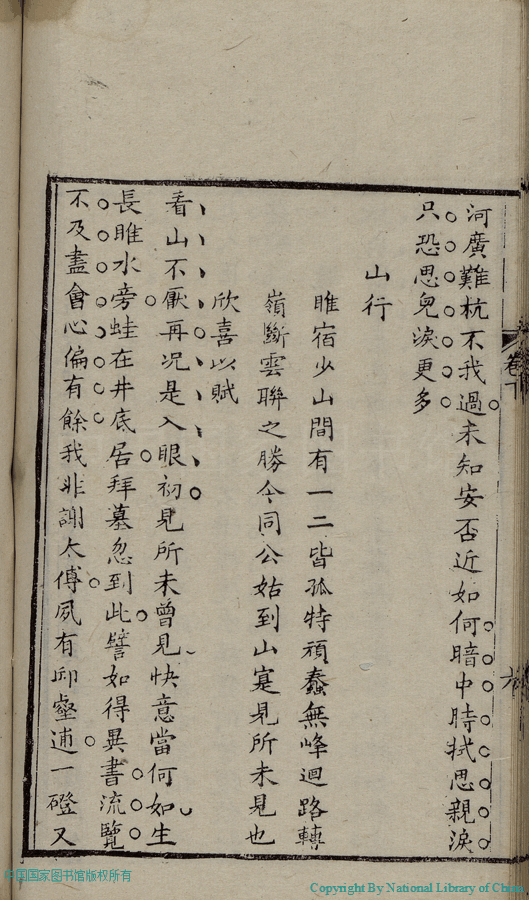 河廣難杭不我過未知安否近如何暗中時拭思親淚
只恐思兒淚更多
山行
睢宿少山間有一二皆孤特頑蠢無峰迴路轉
嶺斷雲聯之勝今同公姑到山寔見所未見也
欣喜以賦
看山不厭再况是入眼初見所未曾見快意當何如生
長睢水旁蛙在井底居拜墓忽到此譬如得異書流覽
不及盡會心偏有餘我非謝太傅夙有邱壑逋一磴又
卷下
六
中国国家图书馆版权所有
Copyright By National Library of China